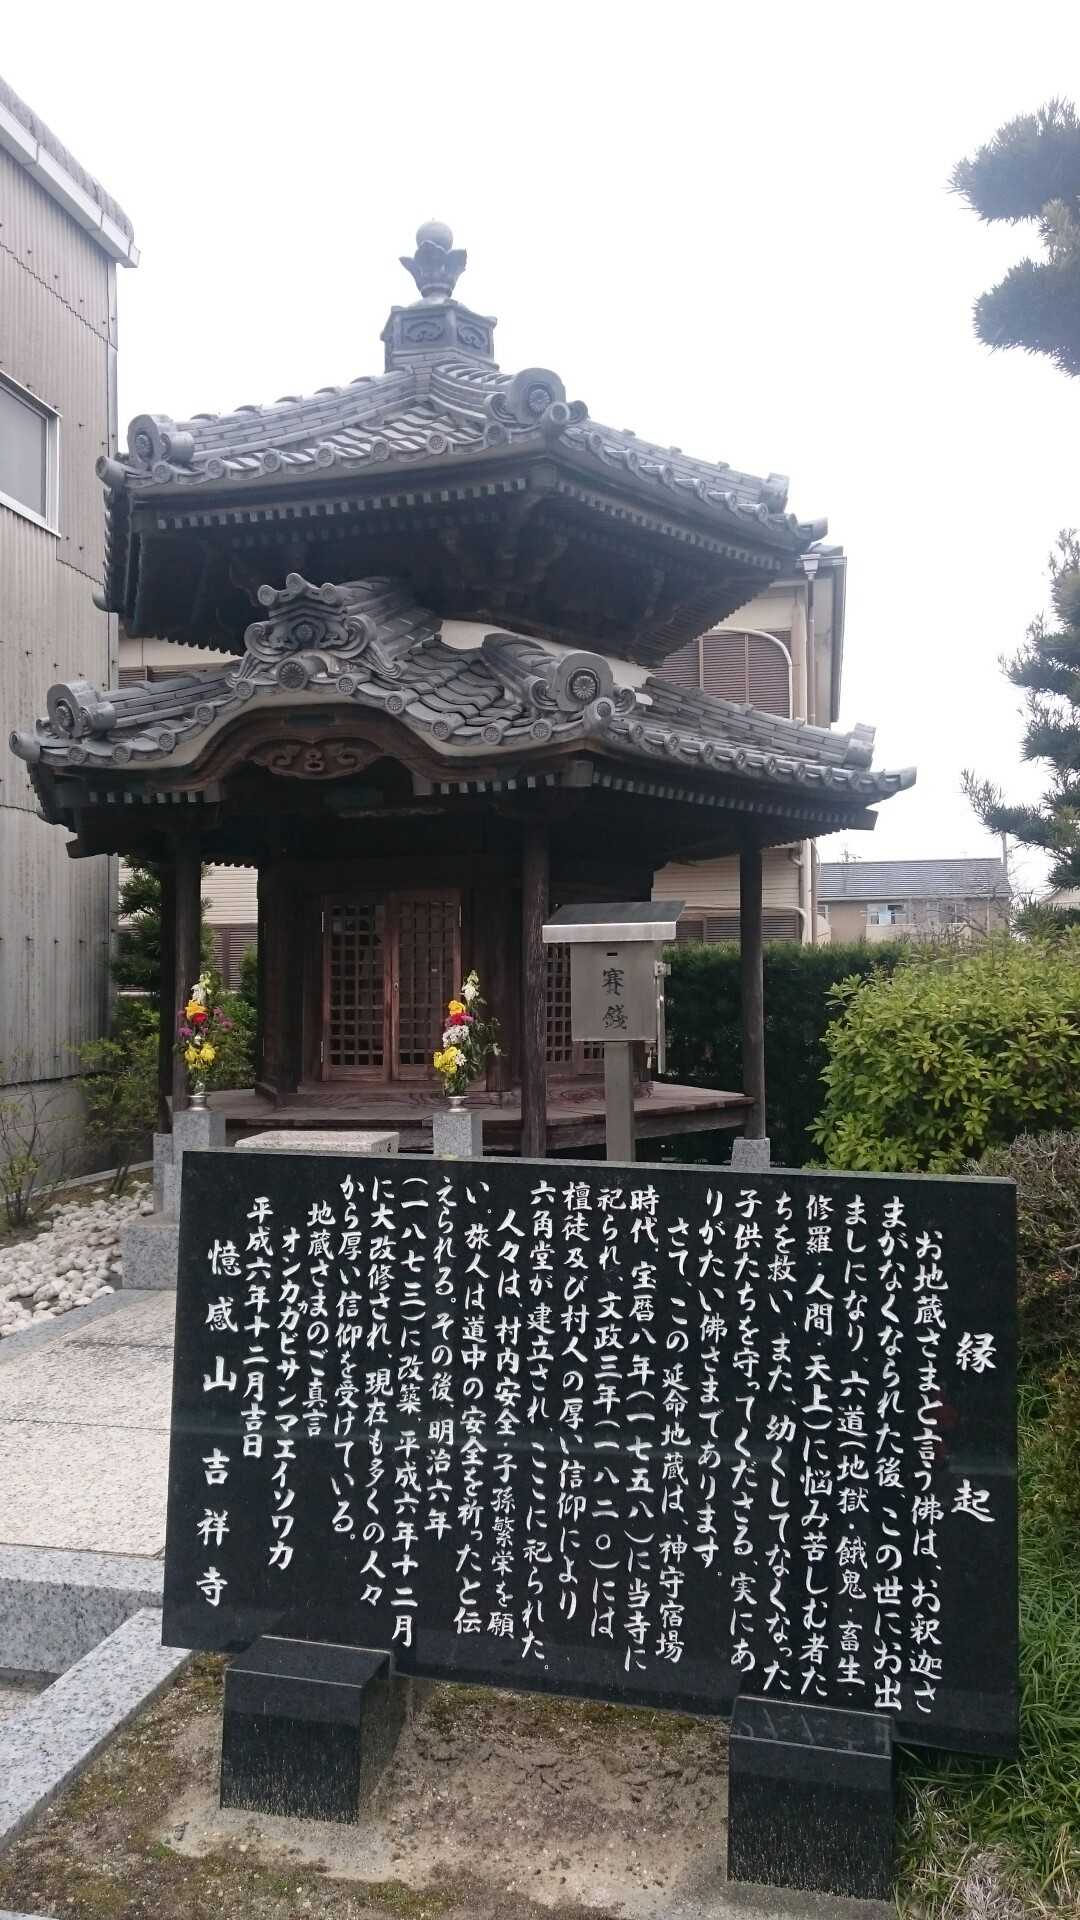 賽銭
縁起
お地蔵さまと言う佛は、お釈迦さ
まがなくなられた後、この世にお出
ましになり、六道(地獄・餓鬼・畜生・
修羅・人間・天上)に悩み苦しむ者た
ちを救い、また、幼くしてなくなった
子供たちを守ってくださる、実にあ
りがたい佛さまであります。
さて、この延命地蔵は、神守宿場
時代、宝暦八年(一七五八)に当寺に
祀られ、文政三年(一八二〇)には
檀徒及び村人の厚い信仰により
六角堂が建立され、ここに祀られた。
人々は、村内安全・子孫繁栄を願
い。旅人は道中の安全を祈ったと伝
えられる。その後、明治六年
(一八七三)に改築、平成六年十二月
に大改修され、現在も多くの人々
から厚い信仰を受けている。
地蔵さまのご真言
オンカカカビサンマエイソワカ
平成六年十二月吉日
憶感山 吉祥寺